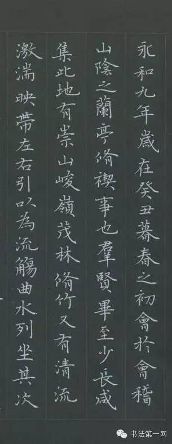 永和九年歲在癸丑暮春之初會於會稽
山陰之蘭亭脩禊事也羣賢畢至少長咸
集此地有崇山峻嶺茂林脩竹又有清流
激湍映帶左右引以為流觴曲水列坐其次
书法第一网